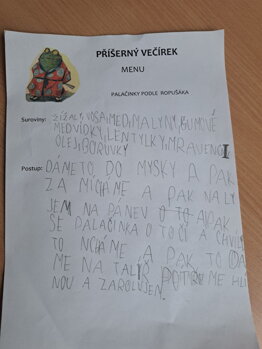 PŘÍŠERNÝ VEČÍREK
MENU
PALAČINKY PODLE ROPUŠÁKA
Suroviny: ŽÍŽALY, VOSA, MED, MALYNY, GUMOVÉ
MEDVÍDKY, LENTYLKY, MRAVENCI
OLEJ, BORUVKY
Postup: DÁME TO DO MYSKY A PAK
ZA MÍCHÁME A PAK NALY
JEM NA PÁNEV O TO A PAK
SE PALAČINKA OTOČÍ A CHVÍLY
TO NCHÁME A PAK TO DÁ
ME NA TALÍŘ POTŘEME HLÍ
NOU A ZAROLUJEM.